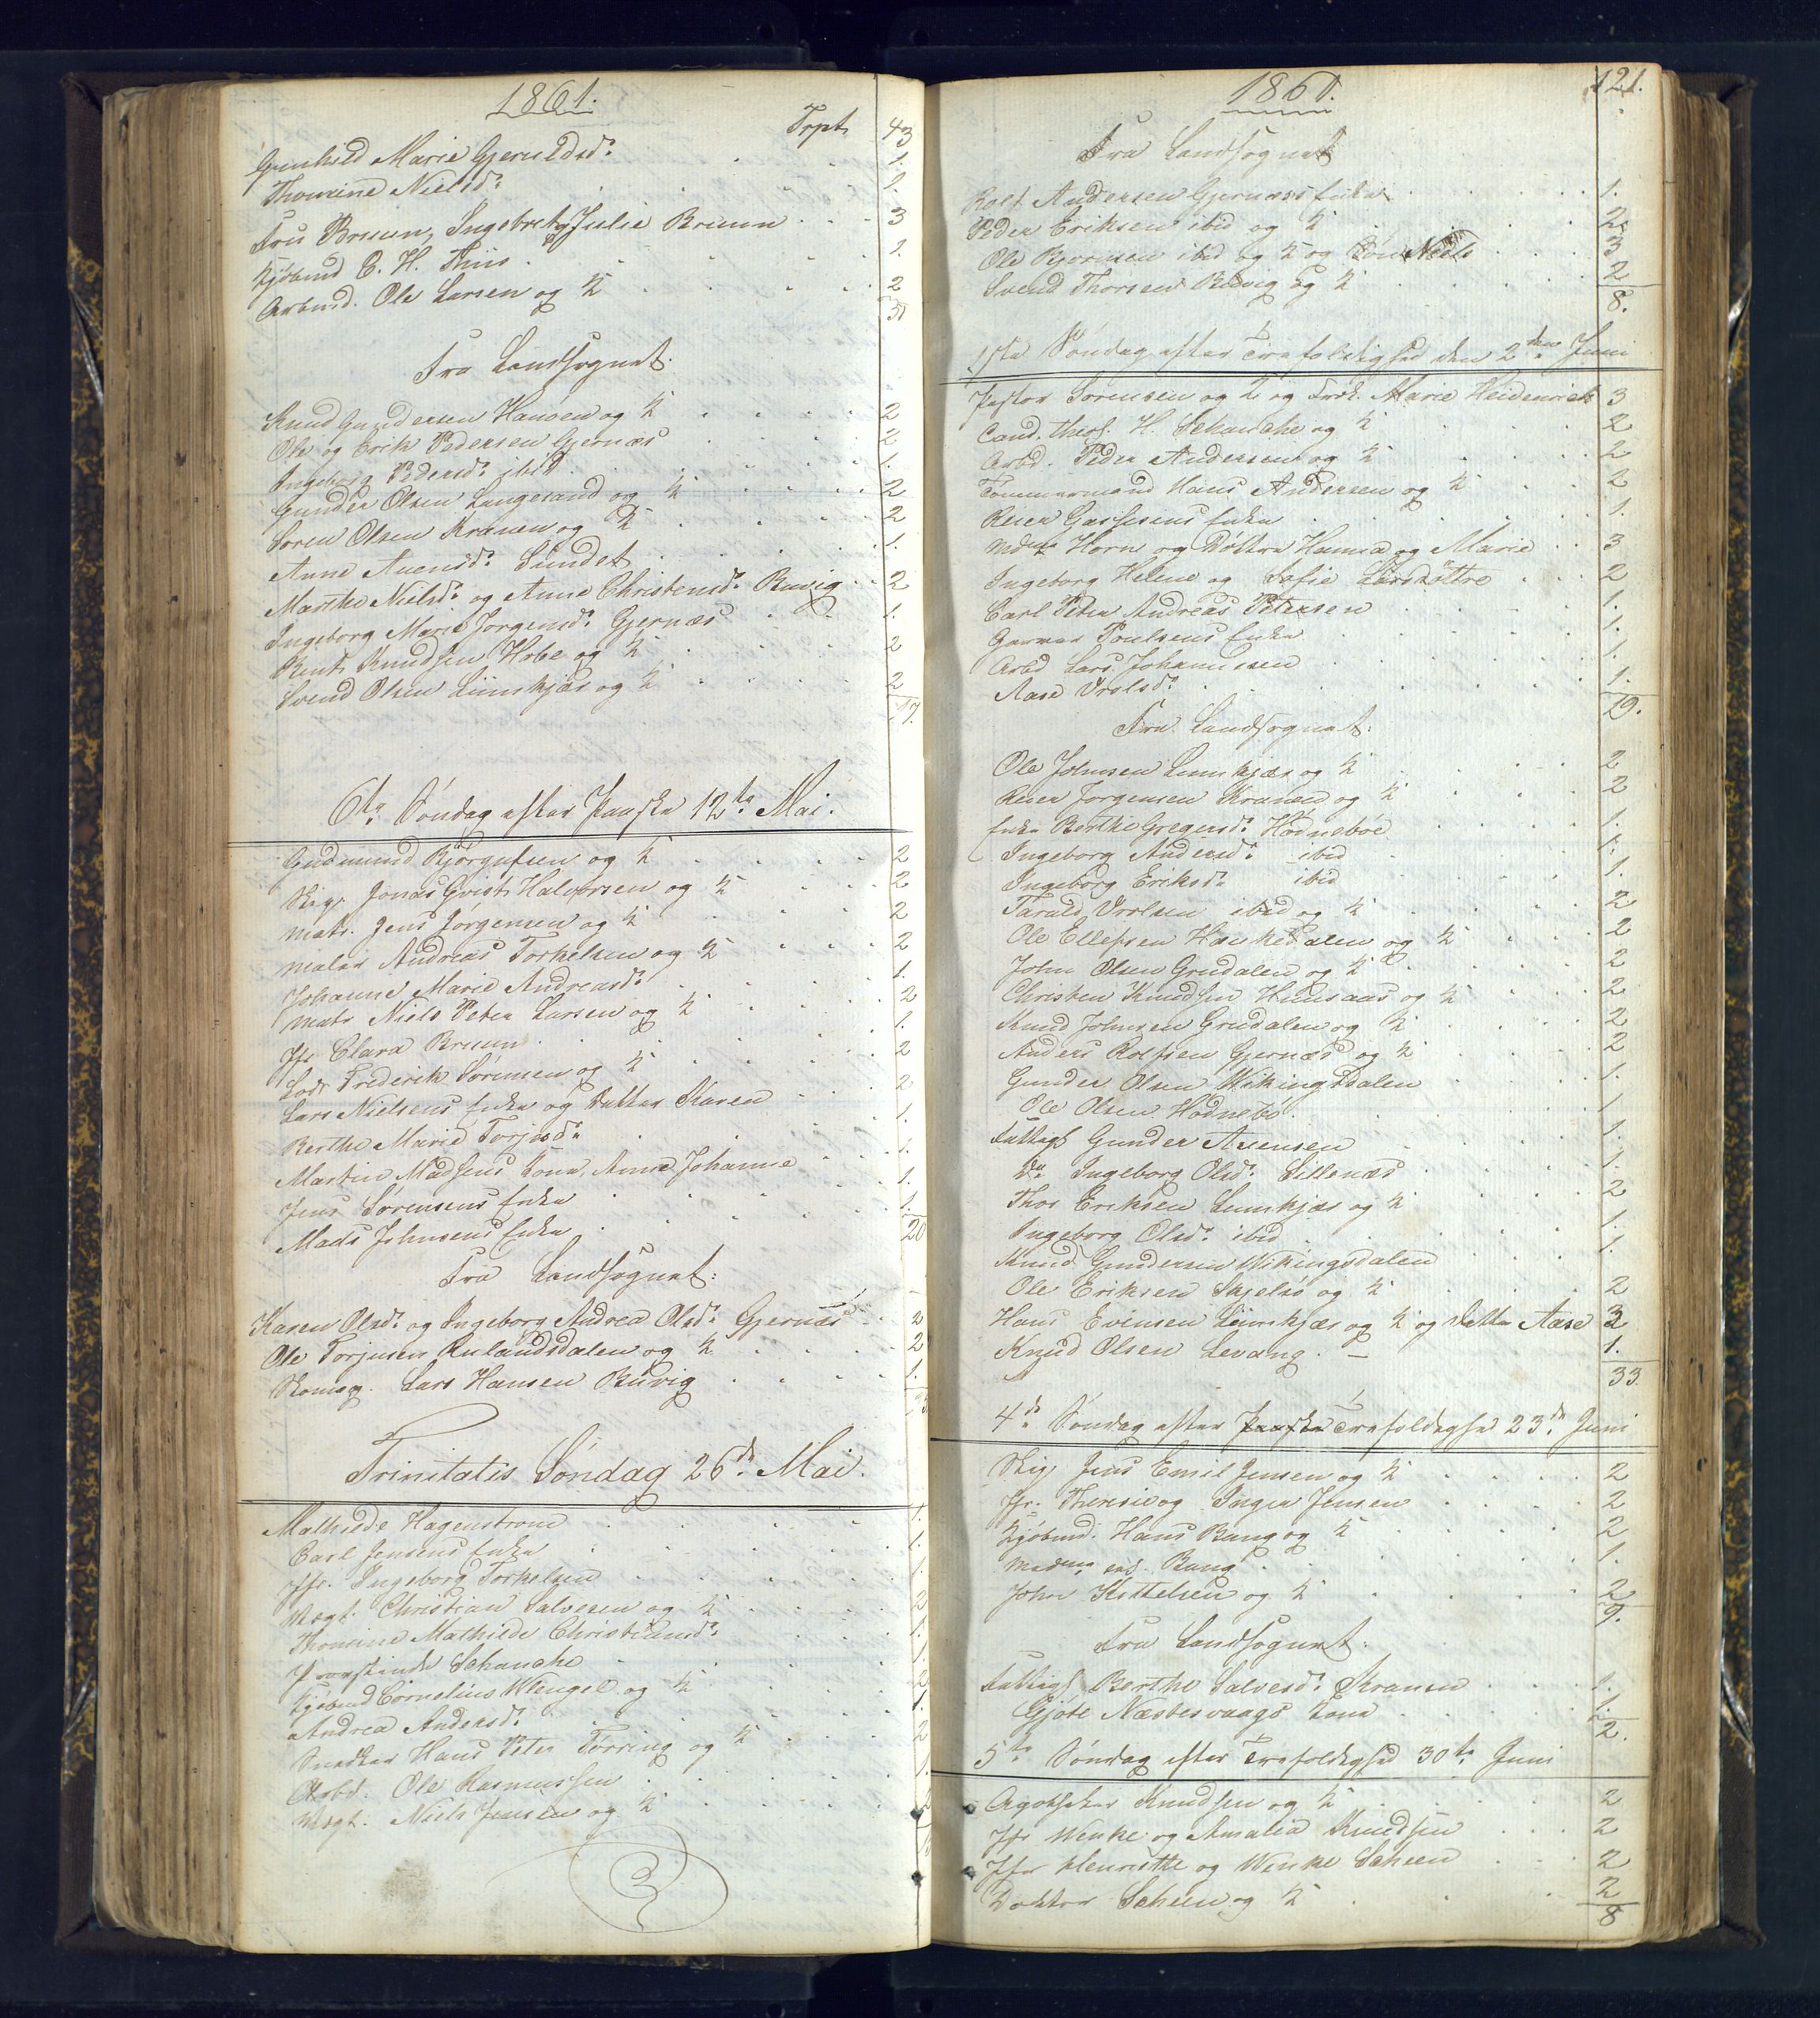 1861.
Trpt. 43
Gunhild Marie Gjeruldsd: 1.
Thomine Nielsd: 1.
Fru Bruun, Ingebret og Julie Bruun 3
Kjøbmd E. H. Thiis 1.
Arbmd. Ole Larsen og K 2
51
Fra Landsognet.
Knud Gundersen Hansen og K 2
Ole og Erik Pedersen Gjernæs 2
Ingeborg Pedersd: ibid 1.
Gunder Olsen Langesand og K 2
Soren Olsen Kranen og K 2
Anne Auensd: Sundet 1.
Marthe Nielsd: og Anne Christensd: Buvig 2
Ingeborg Marie Jorgensd: Gjernæs 1.
Bent Knudsen Hobe og K 2
Svend Olsen Liinskjær og K 2
17.
6te Søndag efter Paaske 12te Mai.
Gudmund Bjørgufsen og K 2
Skip. Jonas Qvist Halvorsen og K 2
Matr. Jens Jørgensen og K 2
Maler Andreas Torkelsen og K 2
Johanne Marie Andreasd: 1.
Matr Niels Peter Larsen og K 2
Jfr Clara Bruun 1.
Lods Frederik Sørensen og K 2
Lars Nielsens Enke og Datter Karen 2
Berthe Marie Torjusd: 1.
Martin Madsens Kone, Anne Johanne 1.
Jens Sørensens Enke 1.
Mads Johnsens Enke 1.
20
Fra Landsognet:
Karen Olsd: og Ingeborg Andrea Olsd: Gjernæs 2
Ole Torjusen Rulandsdalen og K 2
Skomag. Lars Hansen Buvig 1.
Trinitatis Søndag 26de Mai.
Mathilde Hagenstrom 1.
Carl Jensens Enke 1.
Jfr. Ingeborg Torkelsen 1
Mægl. Christian Salvesen og K 2
Thomine Mathilde Christiansd: 1.
Provstinde Schanche 1
Kjøbmd Cornelius Wengel og K 2
Andrea Andersd: 1.
Snedker Hans Peter Tørring og K 2
Arbd. Ole Rasmussen 1.
Mægl. Niels Jensen og K
1861. 121.
Fra Landsognet
Rolf Andersen Gjernæs Enke 1.
Peder Eriksen ibid og K 2
Ole Bjornsen ibid og K og Søn Niels 3
Svend Thorsen Buvig og K 2
8.
1ste Søndag efter Trefoldighed den 2den Juni
Pastor Sorensen og K og Frøk. Marie Heidenrich 3
Cand. theol. H. Schanche og K 2
Arbd. Peder Andersen og K 2
Tømmermand Hans Andersen og K 2
Reier Gassesens Enke 1.
Mdme Horn og Døttre Hanna og Marie 3
Ingeborg Helene og Sofie Larsdøttre 2
Carl Peter Andreas Petersen 1.
Garver Poulsens Enke 1.
Arbd Lars Johannesen 1.
Aase Vrolsd: 1.
19.
Fra Landsognet:
Ole Johnsen Liinskjær og K 2
Reier Jorgensen Kranen og K 2
Enke Berthe Gregersd: Hødnebøe 1.
Ingeborg Andersd: ibid 1.
Ingeborg Eriksd: ibid 1.
Tarald Vrolsen ibid og K 2
Ole Ellefsen Haukedalen og K 2
John Olsen Grudalen og K 2
Christen Knudsen Hunsaas og K 2
Knud Johnsen Grudalen og K 2
Anders Rolfsen Gjernæs og K 2
Gunder Olsen Wikingsdalen 1.
Ole Olsen Hødnebø 1
Fattigl Gunder Auensen 1.
Do Ingeborg Olsd: Sillenæs 1.
Thor Eriksen Linnskjær og K 2
Ingeborg Olsd: ibid 1.
Knud Gundersen Wikingsdalen 1.
Ole Eriksen Skjelsø og K 2
Hans Evensen Liinskjær og K og Datter Aase 3
Knud Olsen Levang 1.
33
4de Søndag efter Paaske Trefoldighed 23de Juni
Skip Jens Emil Jensen og K 2
Jfr. Theresie og Inger Jensen 2
Kjøbmd. Hans Bang og K 2
Madme Bang 1.
John Kittelsen og K 2
9.
Fra Landsognet:
Fattigl Berthe Salvesd: Kranen 1.
Gjøte Næstesvaags Kone 1.
2.
5te Søndag efter Trefoldighed 30te Juni
Apotheker Knudsen og K 2
Jfr Wenke og Amalia Knudsen 2
Jfr Henriette og Wenke Scheen 2
Doktor Scheen og K 2
8